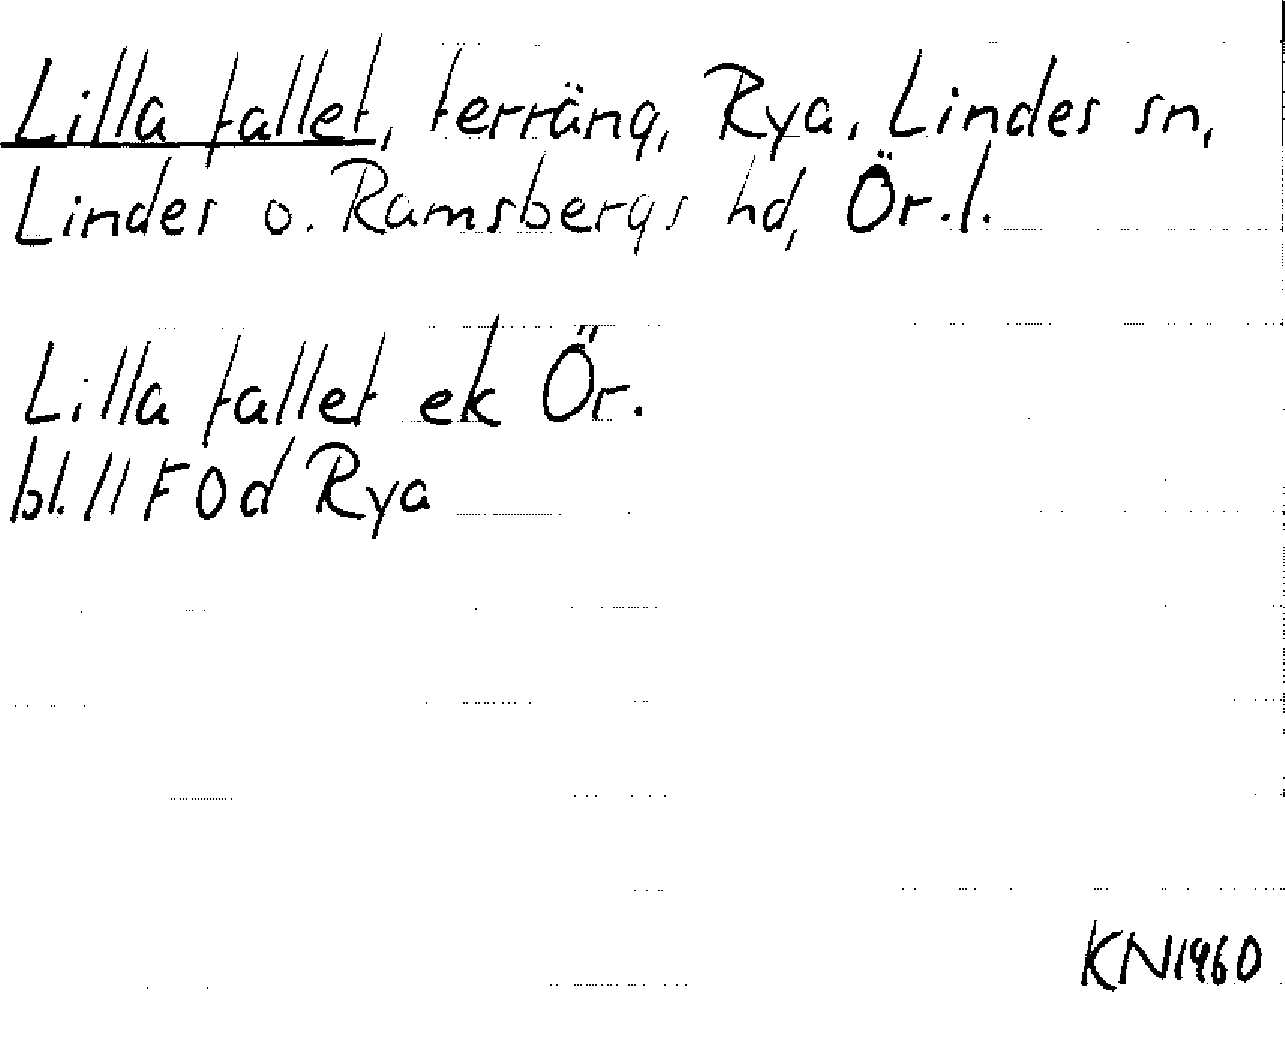 Lilla fallet, terräng, Rya, Lindes sn,
Lindes o. Ramsbergs hd, Ör.l.
Lilla fallet ek Ör.
bl. 11 F 0 d Rya
KN 1960